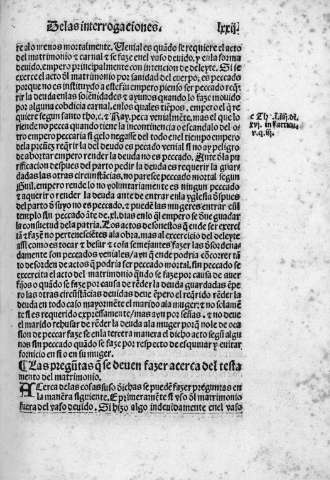 De las interrogaciones. lxxij.
re alo menos mortalmente. Uenial es quãdo se requiere el acto
del matrimonio ⁊ carnal ⁊ se faze enel vaso deuido, y enla forma
deuida, empero principalmente con intencion de deleyte. Si se
exerce el acto ðl matrimonio por sanidad del cuerpo, es peccado
porque no es instituydo a este fin empero pienso ser peccado reqr
rir la deuda enlas solẽnidades ⁊ ayunos quando lo faze mouido
por alguna cobdicia carnal, enlos quales tiẽpos, empero el que
quiere segun santo tho, c, ⁊ Ray, peca venialmẽte, mas el que lo
riende no peca quando tiene la incontinencia o escandalo del o-
tro empero peccaria si gelo negasse del todo enel tiempo empero
dela preñez reqrir la del deudo es pecado venial si no ay peligro
de abortar empero rendir la deuda no es peccado. Ante dla pu-
rificacion despues del parto pedir la deuda es requerir la guar-
dadas las otras circunstãcias, no parece peccado mortal segun
Guil, empero rendelo no voluntariamente es ningun peccado
⁊ aquerir o render la deuda ante de entrar enla yglesia dspues
del parto d suyo no es peccado, ⁊ puedẽ las mugeres entrar enl
templo sin peccado ãte de.xl. dias enlo ql empero se due guadar
la consuetud dela patria. Los actos desonestos q̃nde se exerci
tã ⁊ fazẽ no pertenesciẽtes ala obra, mas al excercicio del deleyte
assi como es tocar ⁊ besar ⁊ cosas semejantes fazer las dsordena-
damente son peccados veniales, avn q̃ ende podria cõcorrer tã
to desorden de actos q̃ podria ser peccado mortal, sin peccado se
exercita el acto del matrimonio quãdo se faze por causa de auer
fijos o quãdo se faze por causa de rẽder la deuda guardadas épe
ro las otras circustãcias deuidas deue épero el reqrido rẽder la
deuda en todo caso mayormẽte el marido ala muger, ⁊ no solamẽ
te si es requerido expressamente, mas avn por señas, ⁊ no deue
el marido rehusar de rẽder la deuda ala muger porq̃ nole de oca
sion de peccar faze se enla tercera manera el dicho acto segũ algu
nos sin peccado quãdo se faze por respecto de esquiuar ⁊ euitar
fornicio en si o en su muger.
¶ Las pregũtas q̃ se deuen fazer acerca del testa
mento del matrimonio.
ACerca delas cosas suso dichas se puedẽ fazer preguntas en
la manera siguiente. E primeramẽte si vso ðl matrimonio
fuera del vaso deuido. Si hizo algo indeuidamente enel vaso
c Th .i.iiij.dî.
xvj. in sartieu.
v.q.iij.